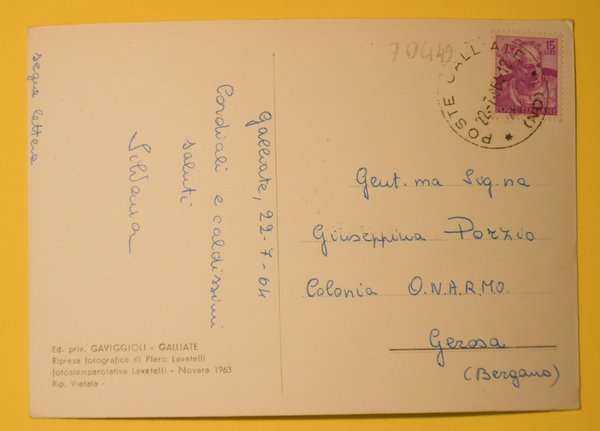 segue lettera
Galliate, 22-7-64
Cordiali e caldissimi
saluti
Silvana
Ed. priv. GAVIGGIOLI - GALLIATE
Ripresa fotografica di Piero Lavatelli
fotostamparotativa Lavatelli - Novara 1963
Rip. Vietata -
70449
15
POSTE ITALIANE
POSTE GALLIATE
(NO)
Gent.ma Sig.na
Giuseppina Porzio
Colonia O.N.A.R.MO.
Gerosa
(Bergamo)